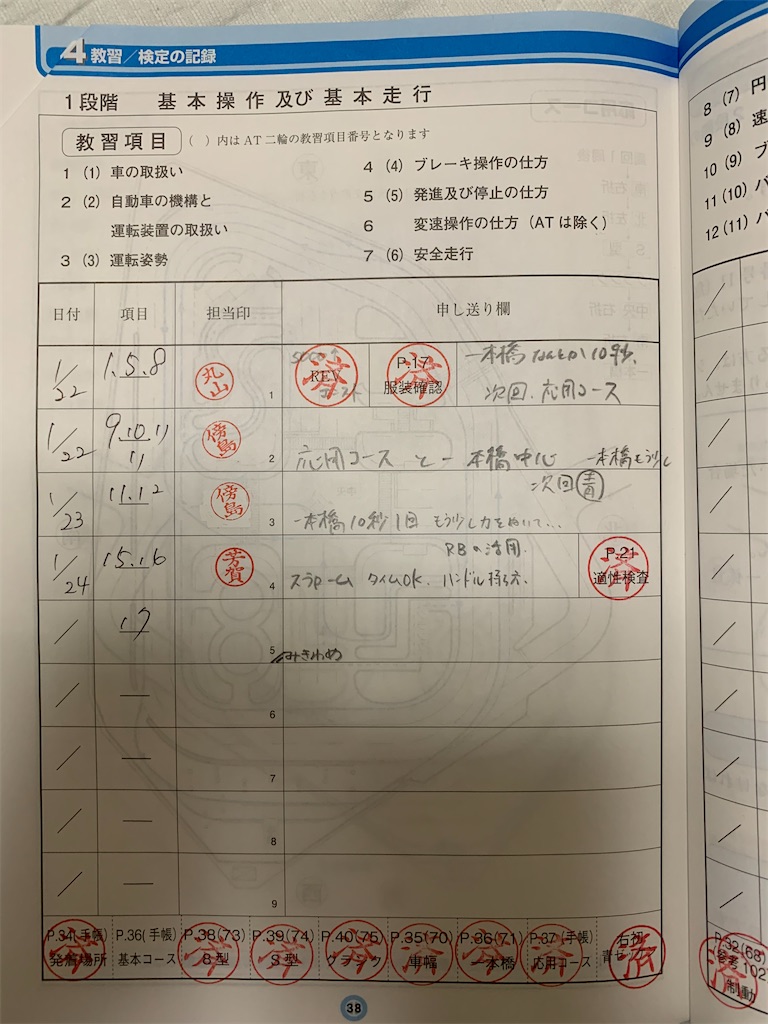 4 教習/検定の記録
1段階 基本操作及び基本走行
教習項目 ( )内はAT二輪の教習項目番号となります
1 (1) 車の取扱い
2 (2) 自動車の機構と
運転装置の取扱い
3 (3) 運転姿勢
4 (4) ブレーキ操作の仕方
5 (5) 発進及び停止の仕方
6 変速操作の仕方（ATは除く）
7 (6) 安全走行
日付 項目 担当印 申し送り欄
1/22 1.5.8 丸山 1 REV 済 P.17 服装確認 済 一本橋 なんとか10秒.
次回.応用コース
1/22 9.10.11 傍島 2 応用コースと一本橋中心 一本橋もう少し
次回
1/23 11.12 傍島 3 一本橋10秒1回 もう少し力をぬいて...
1/24 15.16 芳賀 4 RBの活用.
スラローム タイムOK. ハンドル P.21 適性検査 済
/ 17 5 みきわめ
/ — 6
/ — 7
/ — 8
/ — 9
P.34(手帳) P.36(手帳) P.38(73) P.39(74) P.40(75) P.35(70) P.36(71) P.37(手帳)
発着場所 基本コース 8型 S型 クランク 車幅 一本橋 応用コース
済
38
8 (7) 円
9 (8) 速
10 (9) ブ
11 (10) バ
12 (11) バ
P.32(68)
参考102
制動
済